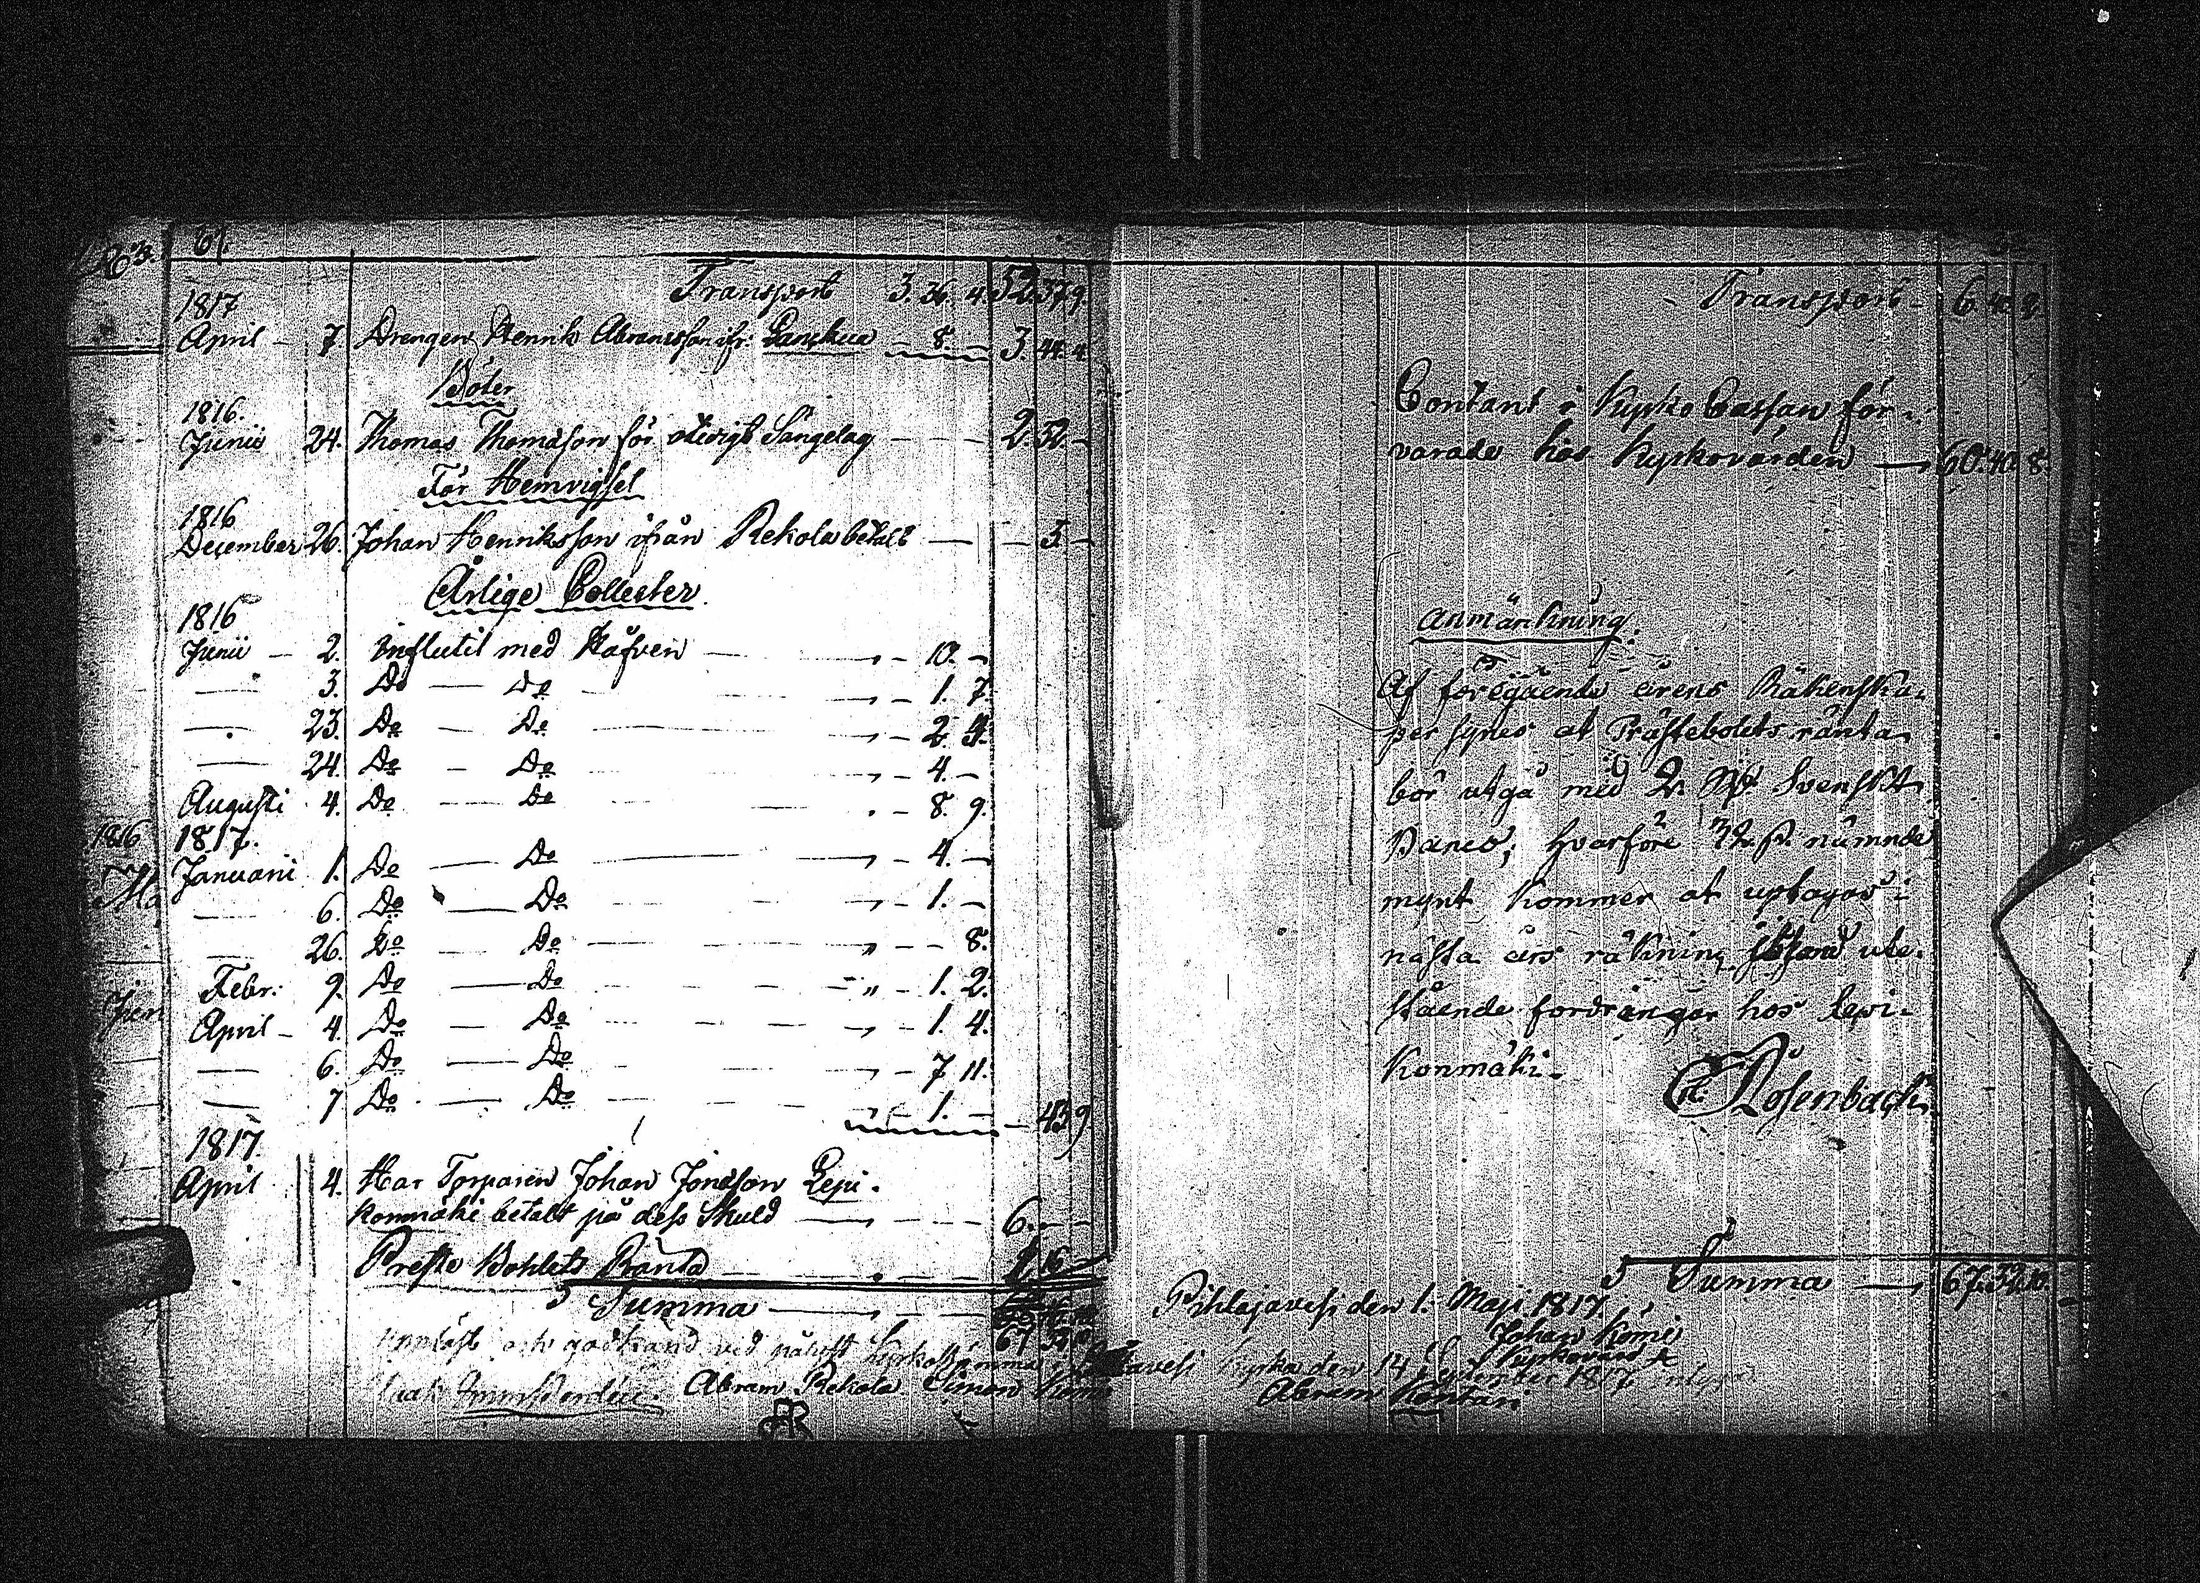 61.
Transport 3. 36. 4. 52. 37. 9.
1817
April - 7 Drengen Henrik Abramsson ifr: - 8. - 3. 44. 4.
Böter
1816.
Junii 24. Thomas Thomasson för otidigt Sängelag - - - 2. 52. -
För Hemvigsel
1816
December 26. Johan Henriksson ifrån Rekola betalt - - 3. -
Årlige Collecter
1816
Junii - 2. Influtit med Håfven - 10. -
3. Do Do - 1. 7.
23. Do Do - 2. 4.
24. Do Do - 4. -
Augusti 4. Do Do - 8. 9.
1817.
Januarii 1. Do Do - 4. -
6. Do Do - 1. -
26. Do Do - - 8.
Febr: 9. Do Do - 1. 2.
April - 4. Do Do - 1. 4.
6. Do Do - 7 11.
7 Do Do 1. - - 43 9
1817.
April 4. Har Torparen Johan Jonasson Lepi-
konmäki betalt på dess skuld - - - 6. - -
Preste Bohlets Ränta 1. 16 -
Summa
67 32 10
Uppläst och godkänd vid påtyst Sockostämma i
Abram Rekola Simon
1816
Transport - 6. 40.
Contant i Kyrko Cassan för-
varade hos Kyrkovärden - 60. 40. 8.
Anmärkning.
Af föregående årens Räkenska-
per synes at Prästebolets ränta
bör utgå med 2 Rd Svenskt
Banco; hvarföre 32 s. nämnde
mynt kommer at uptagas i
nästa års räkning ibland ute-
stående fordringar hos Lepi-
konmäki.
Rosenback.
Summa - 67. 32. 10.
Pihlajavesi den 1. Maji 1817
Johan Komi
Kyrkovärd
Kyrka den 14 September 1817
Abram Kontari